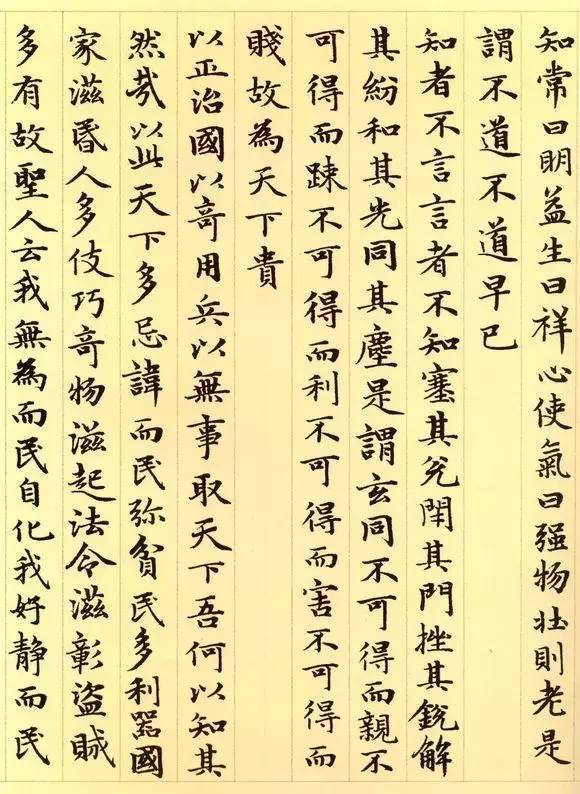 知常曰明益生曰祥心使氣曰强物壯則老是
謂不道不道早已
知者不言言者不知塞其兌閇其門挫其銳解
其紛和其光同其塵是謂玄同不可得而親不
可得而踈不可得而利不可得而害不可得而
賤故為天下貴
以正治國以奇用兵以無事取天下吾何以知其
然哉以此天下多忌諱而民弥貧民多利器國
家滋昬人多伎巧奇物滋起法令滋彰盜賊
多有故聖人云我無為而民自化我好静而民